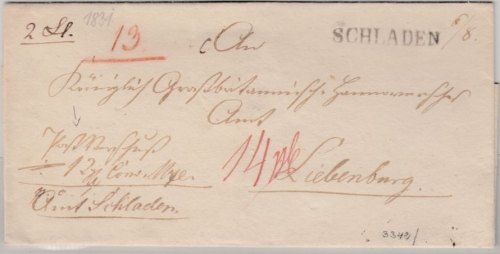 2 Lt.
1831.
13
An
SCHLADEN
6/8.
Königlich Großbritannisch Hannoversches
Amt
Post Vorschuß
14
Liebenburg.
Amt Schladen.
3349/